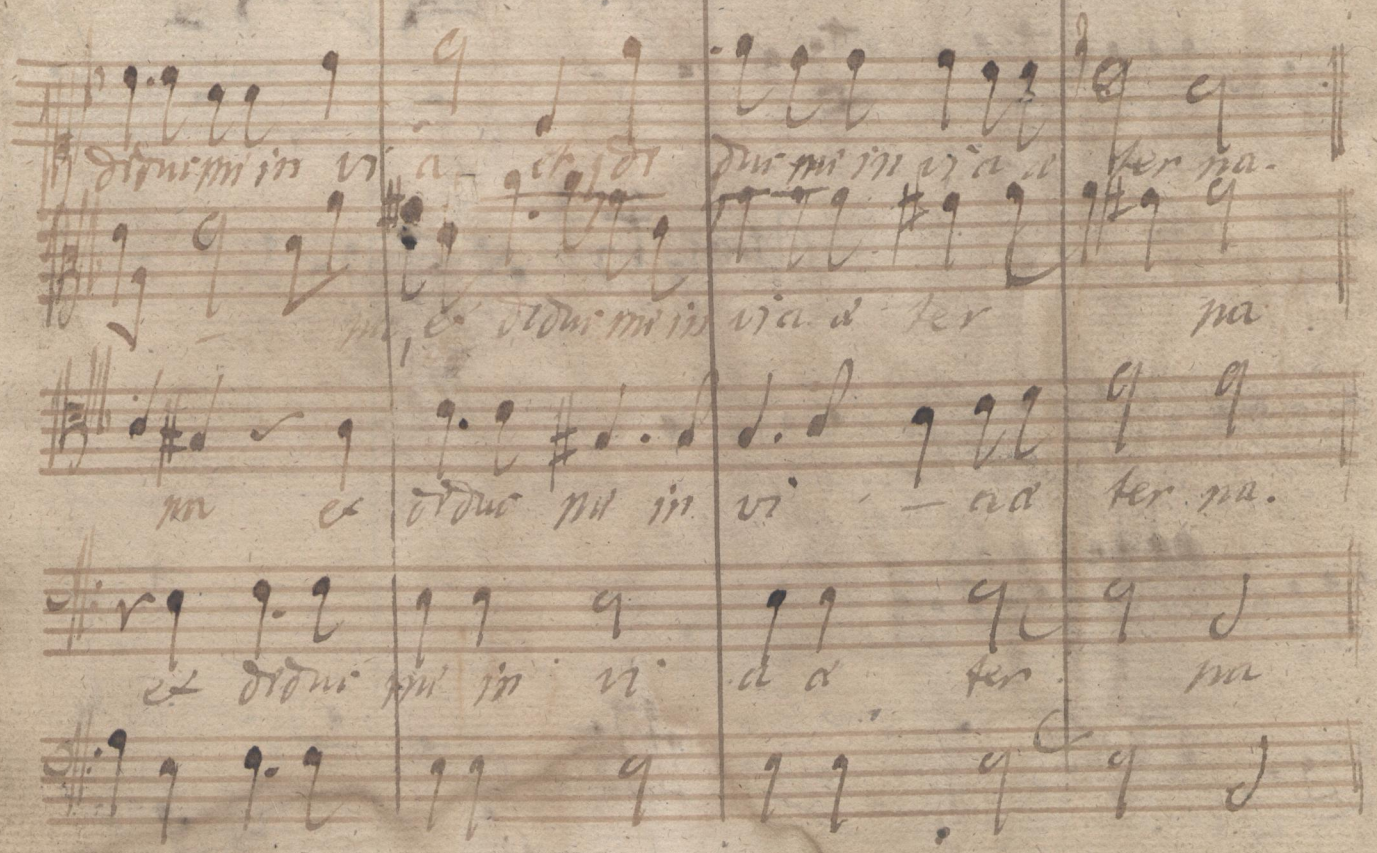 deduc me in vi a et de duc me in via æ ter na.
na, et deduc me in via æ ter na
na et deduc me in vi — a æ ter na.
et deduc me in vi a æ ter na